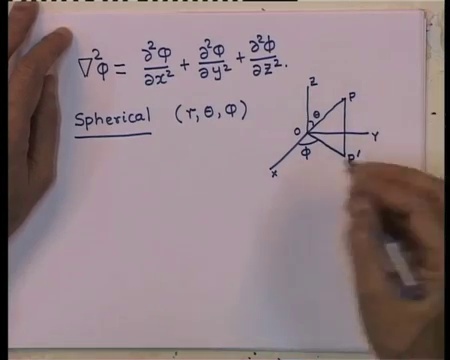 ∇²Φ = ∂²Φ/∂x² + ∂²Φ/∂y² + ∂²Φ/∂z².
Spherical (r, θ, Φ)
Z
P
θ
O
Y
Φ
P'
X